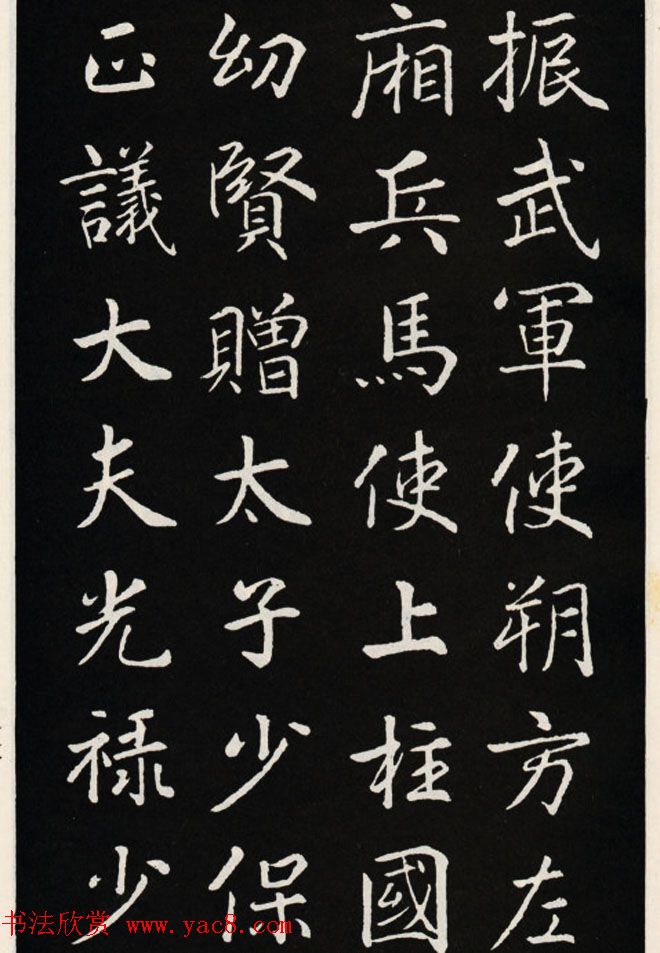 振武軍使朔方左
廂兵馬使上柱國
幼賢贈太子少保
正議大夫光禄少
书法欣赏 www.yac8.com